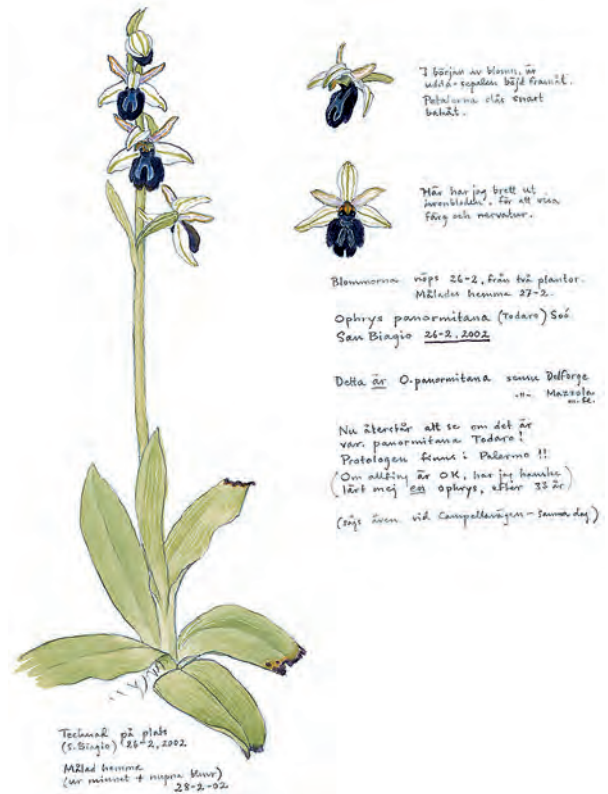 I början av blomn. är
udda-sepalen böjd framåt.
Petalerna slås snart
bakåt.
Här har jag brett ut
, för att visa
färg och nervatur.
Blommorna nöps 26-2, från två plantor.
Målades hemma 27-2.
Ophrys panormitana (Todaro) Soó
San Biagio 26-2, 2002
Detta är O. panormitana sensu Delforge
-"- Mazzola
Nu återstår att se om det är
var. panormitana Todaro!
Protologen finns i Palermo !!
(Om allting är OK, har jag kanske)
(lärt mej en ophrys, efter 33 år)
(sågs även vid - samma dag)
Tecknad på plats
(S. Biagio) 26-2, 2002
Målad hemma
(ur minnet + nupna blmr)
28-2-02